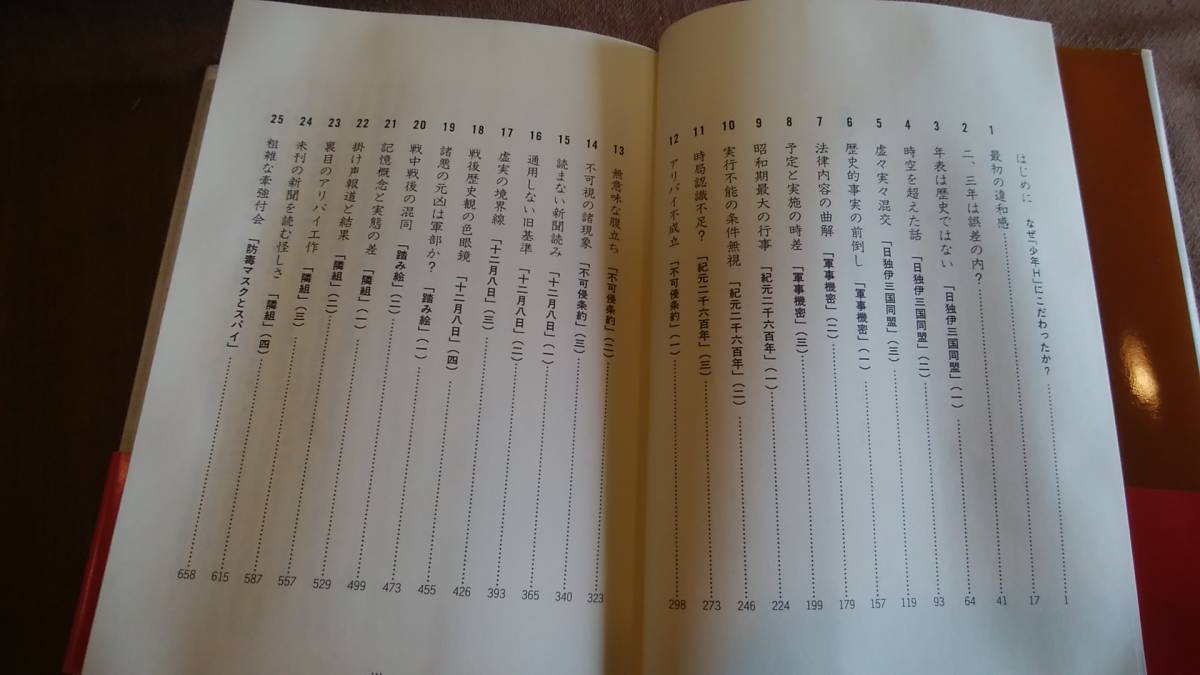 はじめに なぜ「少年H」にこだわったか?……1
1 最初の違和感……17
2 二、三年は誤差の内?……41
3 年表は歴史ではない 「日独伊三国同盟」(一)……64
4 時空を超えた話 「日独伊三国同盟」(二)……93
5 虚々実々混交 「日独伊三国同盟」(三)……119
6 歴史的事実の前倒し 「軍事機密」(一)……157
7 法律内容の曲解 「軍事機密」(二)……179
8 予定と実施の時差 「軍事機密」(三)……199
9 昭和期最大の行事 「紀元二千六百年」(一)……224
10 実行不能の条件無視 「紀元二千六百年」(二)……246
11 時局認識不足? 「紀元二千六百年」(三)……273
12 アリバイ不成立 「不可侵条約」(一)……298
13 無意味な腹立ち 「不可侵条約」(二)……323
14 不可視の諸現象 「不可侵条約」(三)……340
15 読まない新聞読み 「十二月八日」(一)……365
16 通用しない旧基準 「十二月八日」(二)……393
17 虚実の境界線 「十二月八日」(三)……426
18 戦後歴史観の色眼鏡 「十二月八日」(四)……455
19 諸悪の元凶は軍部か? 「踏み絵」(一)……473
20 戦中戦後の混同 「踏み絵」(二)……499
21 記憶概念と実態の差 「隣組」(一)……529
22 掛け声報道と結果 「隣組」(二)……557
23 裏目のアリバイ工作 「隣組」(三)……587
24 未刊の新聞を読む怪しさ 「隣組」(四)……615
25 粗雑な牽強付会 「防毒マスクとスパイ」……658